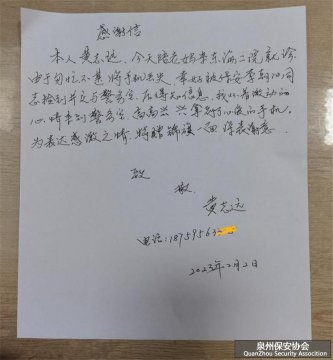 感谢信
本人黄志远，今天陪在姑来东海二院就诊
由于匆忙不慎将手机丢失，幸好被保安李朝旧同
志捡到并交与警务室，后得知信息，我怀着激动的
心情来到警务室，高高兴兴拿到了心爱的手机，
为表达感激之情，特赠锦旗一面，深表谢意。
致
敬
黄志远
电话：187595632
2023年2月2日
泉州保安协会
QuanZhou Security Association